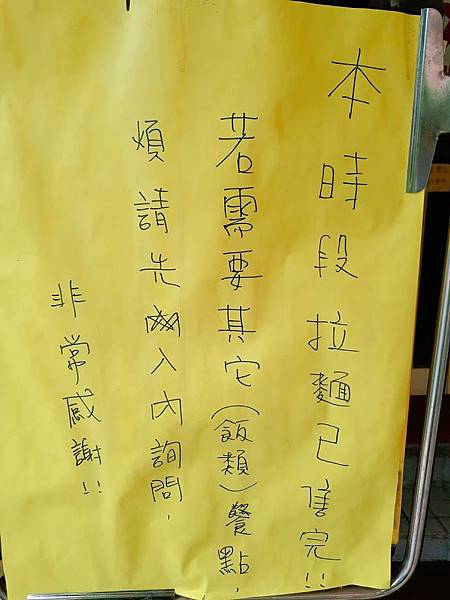 本時段拉麵已售完!!
若需要其它(飯類)餐點,
煩請先入內詢問,
非常感謝!!